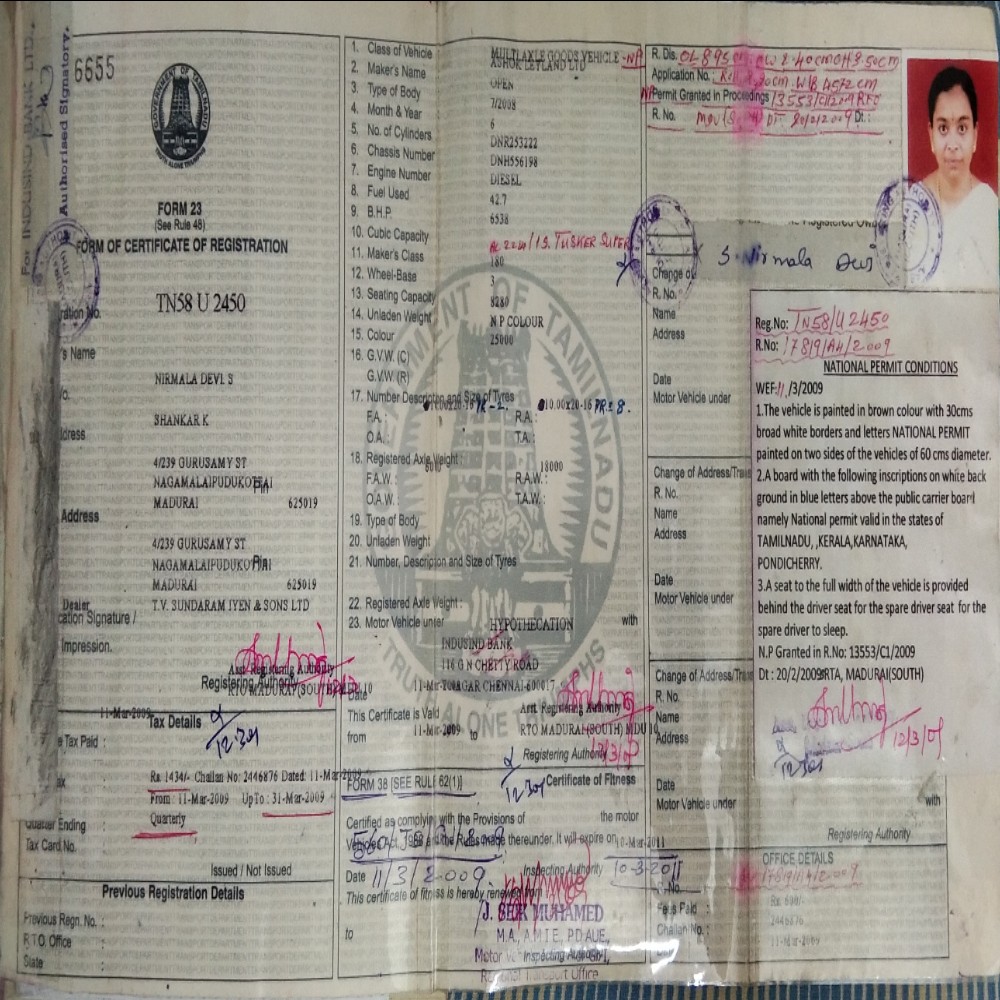 For INDUSIND BANK LTD.,
Authorised Signatory.
6655
GOVERNMENT OF TAMILNADU
TRUTH ALONE TRIUMPHS
FORM 23
(See Rule 48)
FORM OF CERTIFICATE OF REGISTRATION
TN58 U 2450
ration No.
's Name
NIRMALA DEVI. S
SHANKAR K
ddress
4/239 GURUSAMY ST
NAGAMALAIPUDUKOTTAI
Pin
MADURAI 625019
Address
4/239 GURUSAMY ST
NAGAMALAIPUDUKOTTAI
Pin
MADURAI 625019
Dealer T.V. SUNDARAM IYEN & SONS LTD
cation Signature /
Impression.
Asst. Registering Authority
Registering Authority
RTO MADURAI (SOUTH) MDU 10
11-Mar-2009
Tax Details
e Tax Paid :
12.3.09
ax Rs. 1434/- Challan No: 2446876 Dated: 11-Mar-2009
From : 11-Mar-2009 UpTo : 31-Mar-2009
Quarter Ending : Quarterly
Tax Card No.
Issued / Not Issued
Previous Registration Details
Previous Regn. No. :
R.T.O. Office :
State :
1. Class of Vehicle MULTI AXLE GOODS VEHICLE -NP
2. Maker's Name ASHOK LEYLAND LTD
3. Type of Body OPEN
4. Month & Year 7/2008
5. No. of Cylinders 6
6. Chassis Number DNR253222
7. Engine Number DNH556198
8. Fuel Used DIESEL
9. B.H.P. 42.7
10. Cubic Capacity 6538
11. Maker's Class TUSKER SUPER
12. Wheel-Base 180
13. Seating Capacity 3
14. Unladen Weight 8280
15. Colour N P COLOUR
16. G.V.W. (C) 25000
G.V.W. (R)
17. Number Description and Size of Tyres
F.A. : 10.00x20-16 PR-2. R.A. : 10.00x20-16 PR=8.
O.A. : T.A. :
18. Registered Axle Weight :
F.A.W. : 6000 R.A.W. : 18000
O.A.W. : T.A.W. :
19. Type of Body
20. Unladen Weight
21. Number, Description and Size of Tyres
22. Registered Axle Weight :
23. Motor Vehicle under HYPOTHECATION with
INDUSIND BANK
116 G N CHETTY ROAD
Date 11-Mar-2009
NAGAR CHENNAI-600017
This Certificate is Valid
from 11-Mar-2009 to
Asst. Registering Authority
RTO MADURAI (SOUTH) MDU 10
12/3/09
Registering Authority
12.3.09
FORM 38 [SEE RULE 62(1)]
Certificate of Fitness
Certified as complying with the Provisions of the motor
Vehicles Act, 1988 and the Rules made thereunder. It will expire on 10-Mar-2011
Date 11/3/2009.
Inspecting Authority
10-3-2011
This certificate of fitness is hereby renewed from
J. SEIK MUHAMED
to
M.A., A.M.I.E., PD AUE,
Motor Vehicle Inspector
Inspecting Authority
Regional Transport Office
R. Dis.
Application No. :
Permit Granted in Proceedings 13553/C1/2009 RTO
R. No. MDU (South) DT 20/2/2009 Dt :
S. Nirmala Devi
Change of
R. No.
Name
Address
Date
Motor Vehicle under
Change of Address/Trans
R. No.
Name
Address
Date
Motor Vehicle under
Change of Address/Trans
R. No.
Name
Address
Date
Motor Vehicle under with
Registering Authority
Reg.No: TN58/U 2450
R.No: 1789/A4/2009
NATIONAL PERMIT CONDITIONS
WEF: 11/3/2009
1.The vehicle is painted in brown colour with 30cms
broad white borders and letters NATIONAL PERMIT
painted on two sides of the vehicles of 60 cms diameter.
2.A board with the following inscriptions on white back
ground in blue letters above the public carrier board
namely National permit valid in the states of
TAMILNADU, ,KERALA,KARNATAKA,
PONDICHERRY.
3.A seat to the full width of the vehicle is provided
behind the driver seat for the spare driver seat for the
spare driver to sleep.
N.P Granted in R.No: 13553/C1/2009
Dt : 20/2/2009 RTA, MADURAI(SOUTH)
12/3/09
12.3.09
OFFICE DETAILS
R. No. 1789/A4/2009
Fees Paid : Rs. 600/-
Challan No. : 2446876
11-Mar-2009